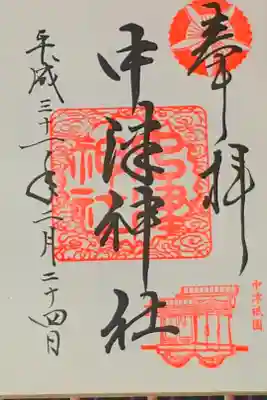 奉拝
中津祇園
中津神社
中津
神社
平成三十一年二月二十四日